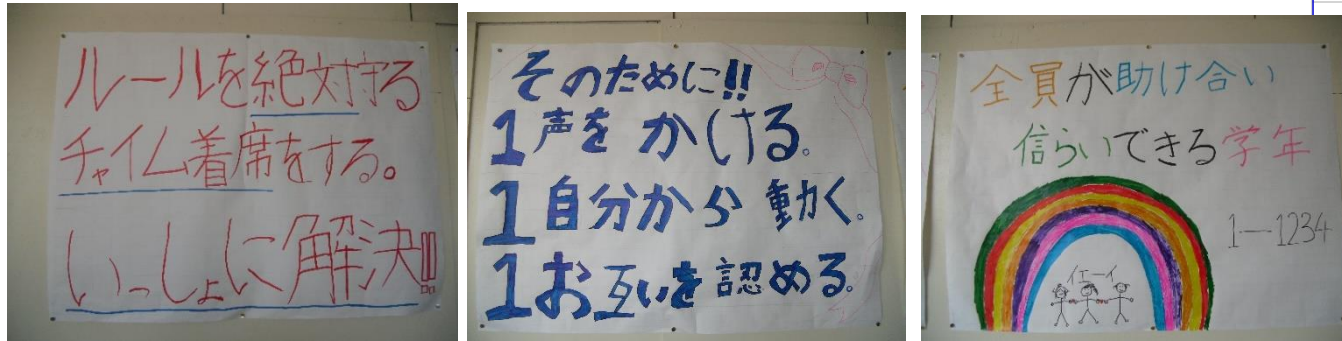 ルールを絶対守る
チャイム着席をする。
いっしょに解決!!
そのために!!
1声をかける。
1自分から動く。
1お互いを認める。
全員が助け合い
信らいできる学年
1―1234
イエーイ